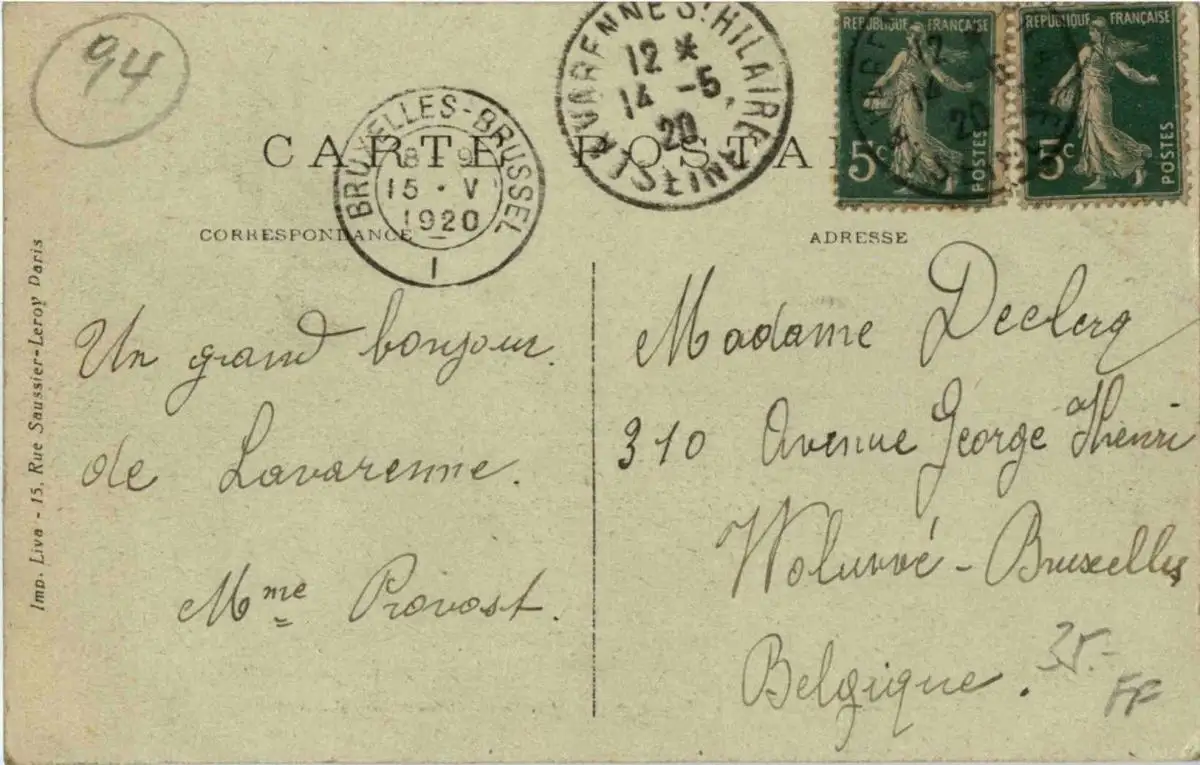 94
CARTE POSTA
LA VARENNE St HILAIRE
12 *
14 -5
20
SEINE
RÉPUBLIQUE FRANÇAISE
5c
POSTES
RÉPUBLIQUE FRANÇAISE
5c
POSTES
BRUXELLES-BRUSSEL
8-9
15 · V
1920
1
CORRESPONDANCE
ADRESSE
Un grand bonjour
de Lavarenne.
Mme Provost.
Madame Declerq
310 Avenue George Henri
Woluvvé - Bruxelles
Belgique.
35.-
FF
Imp. Liva - 15, Rue Saussier-Leroy Paris